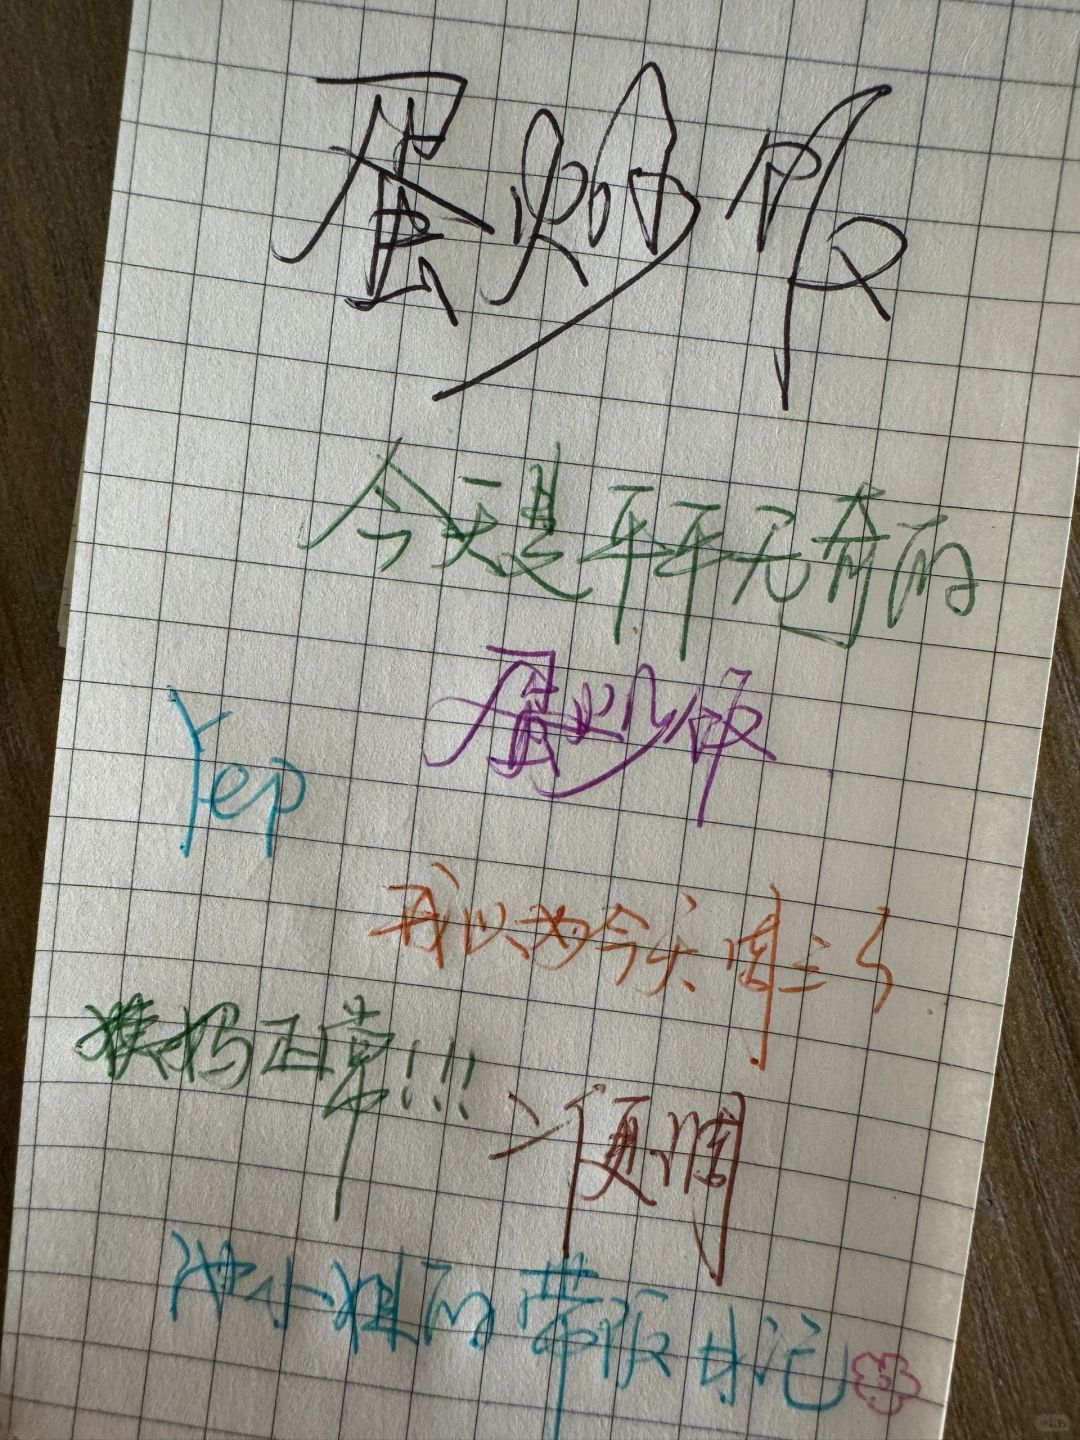 蛋炒饭
今天是平平无奇的
蛋炒饭
Yep
我以为今天周三了
正常!!!
便
的带饭日记